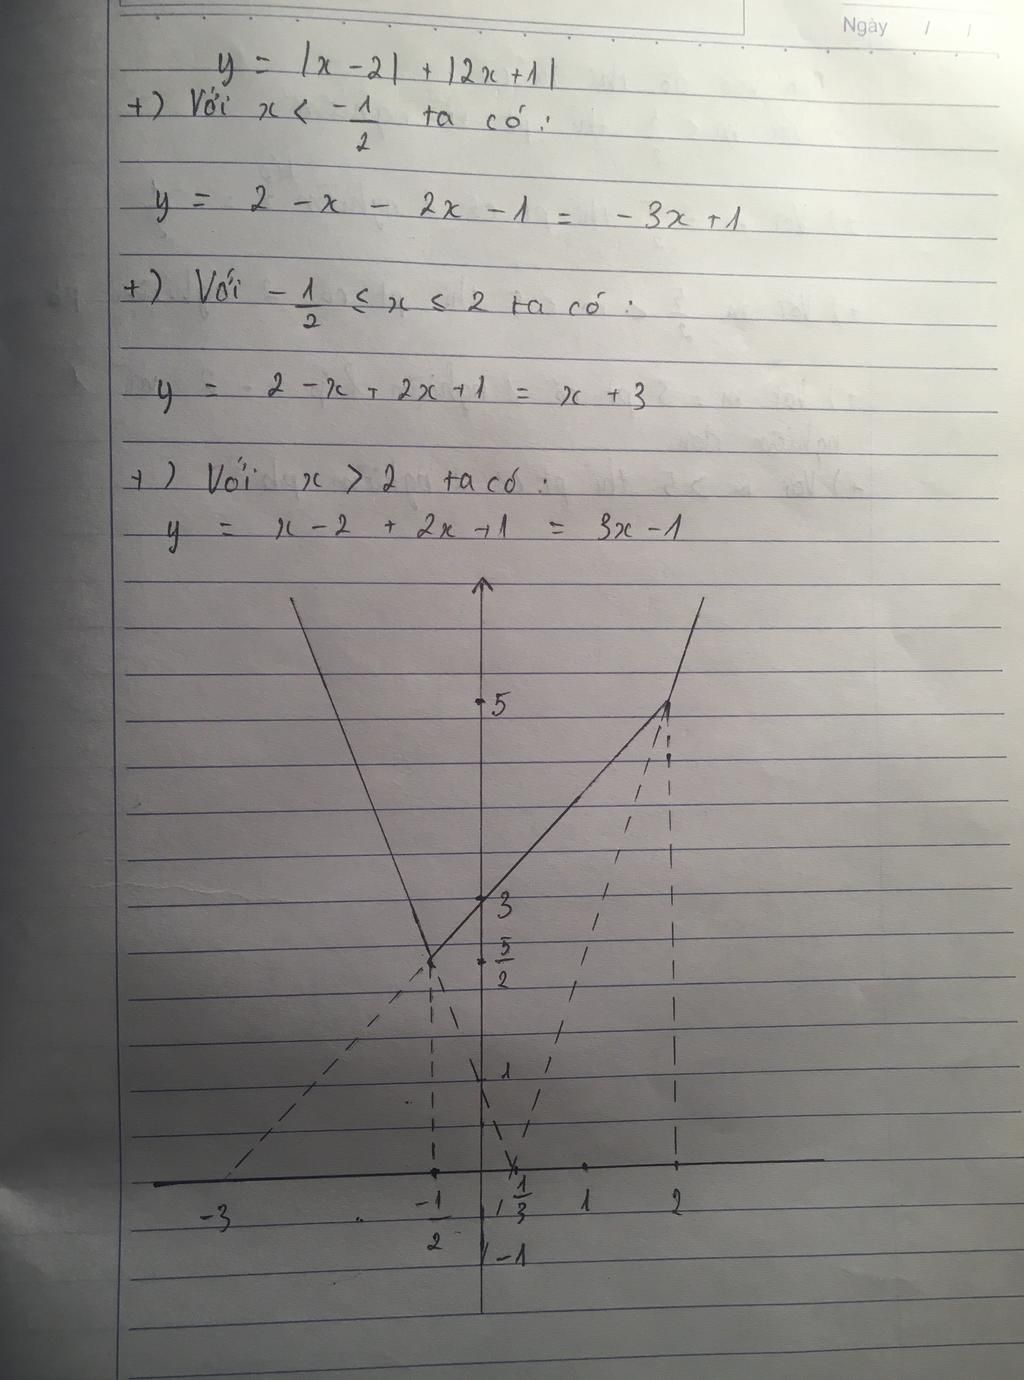 Ngày / /
y = |x - 2| + |2x + 1|
+) Với x < -1/2 ta có:
y = 2 - x - 2x - 1 = -3x + 1
+) Với -1/2 ≤ x ≤ 2 ta có:
y = 2 - x + 2x + 1 = x + 3
+) Với x > 2 ta có:
y = x - 2 + 2x + 1 = 3x - 1
5
3
5/2
1
-3 -1/2 1/3 1 2
-1